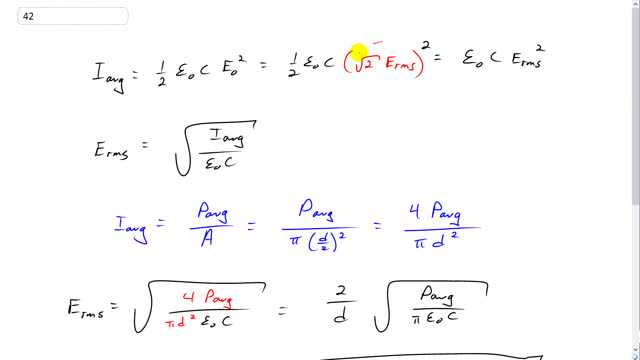 42
I_avg = 1/2 ε₀ C E₀² = 1/2 ε₀ C (√2 E_rms)² = ε₀ C E_rms²
E_rms = √(I_avg / ε₀ C)
I_avg = P_avg / A = P_avg / π (d/2)² = 4 P_avg / π d²
E_rms = √(4 P_avg / π d² ε₀ C) = 2/d √(P_avg / π ε₀ C)